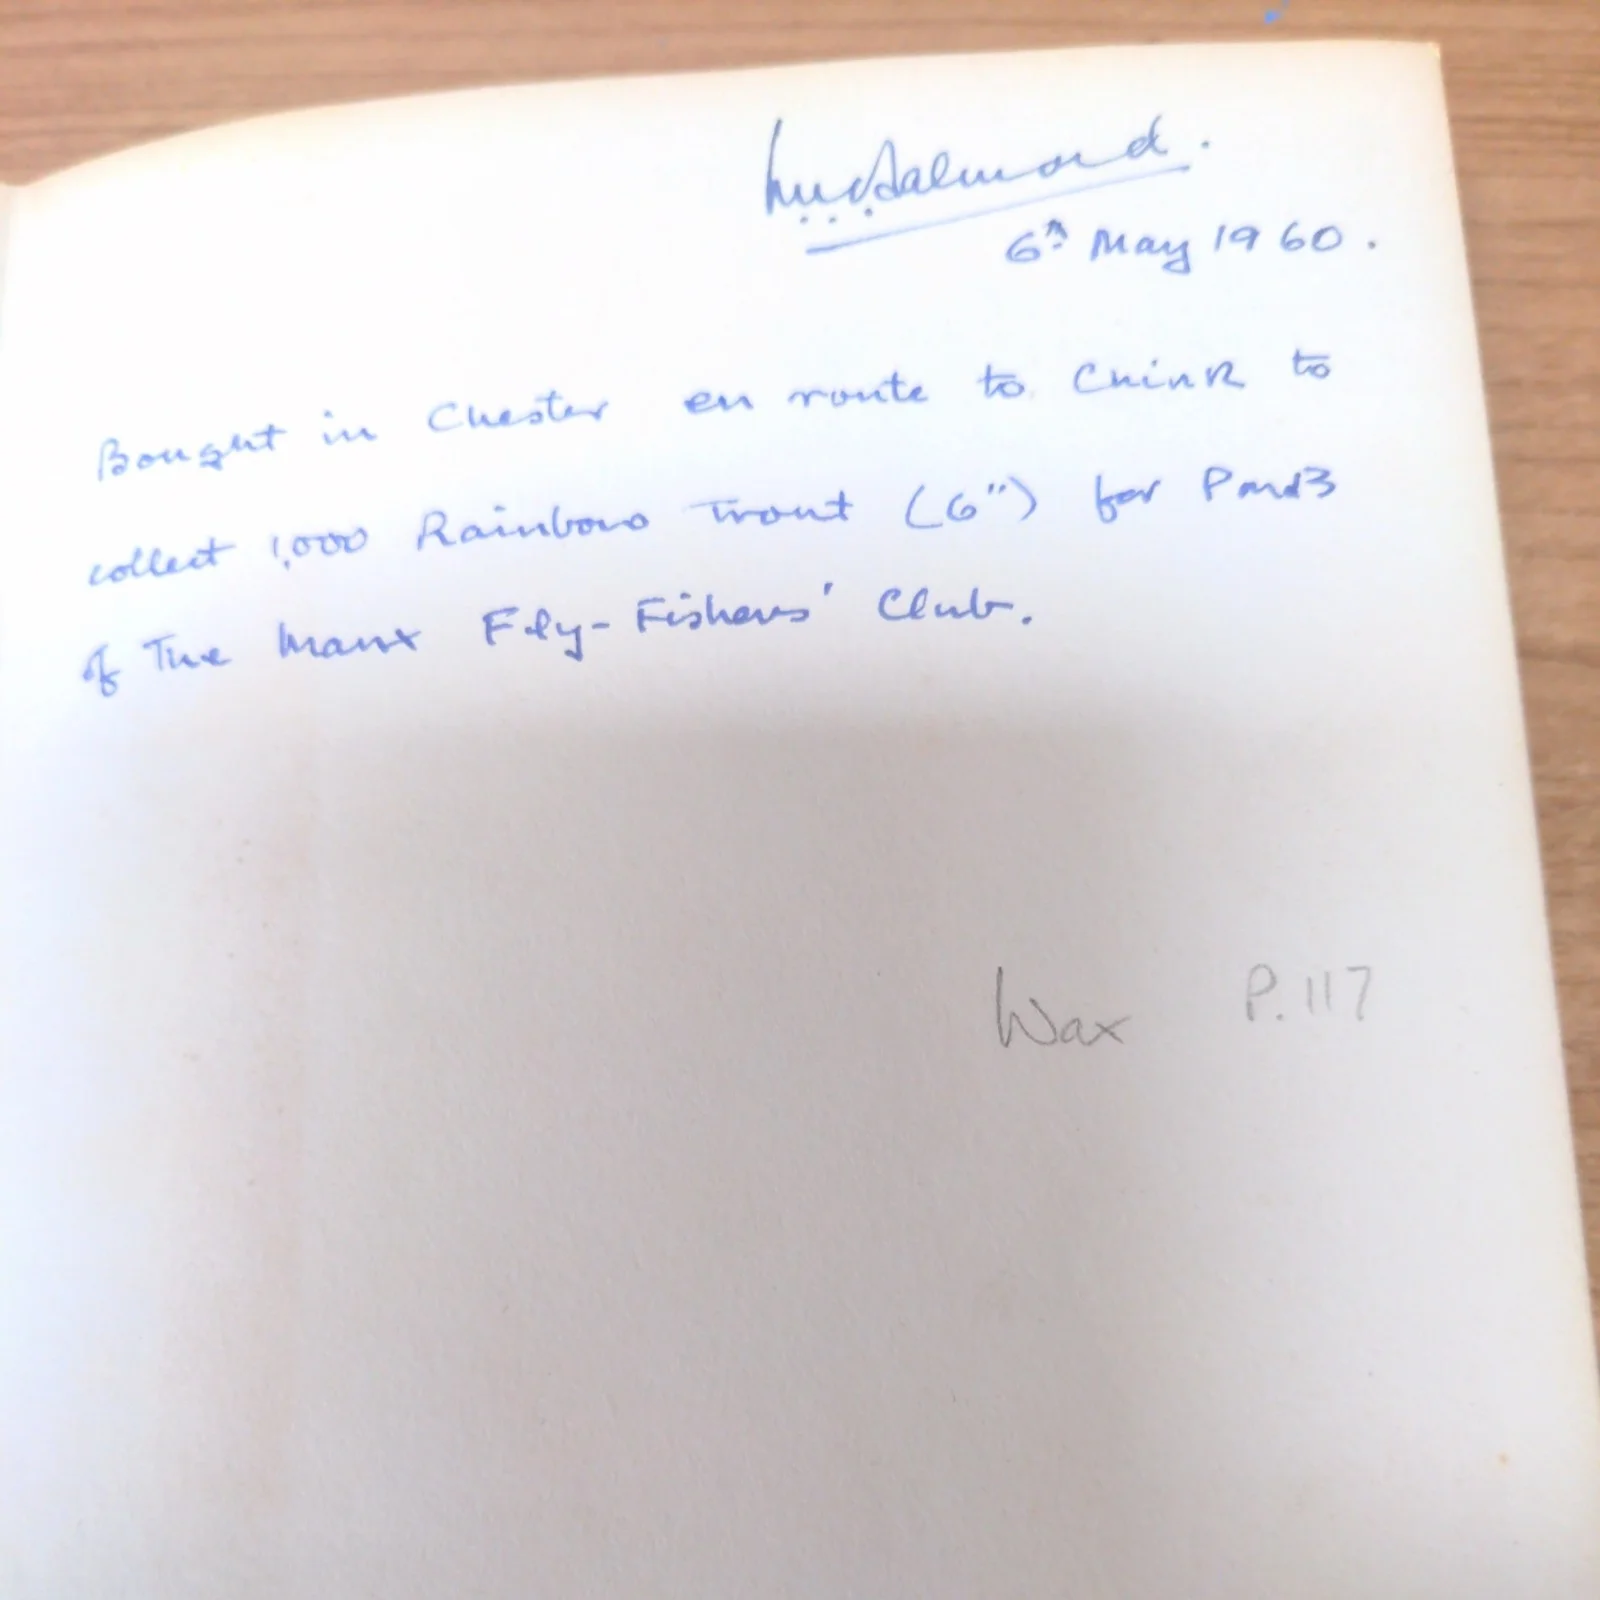 Salmond.
6th May 1960.
Bought in Chester en route to Chirk to
collect 1,000 Rainbow Trout (6") for Pond 3
of The Manx Fly-Fishers' Club.
Wax P.117